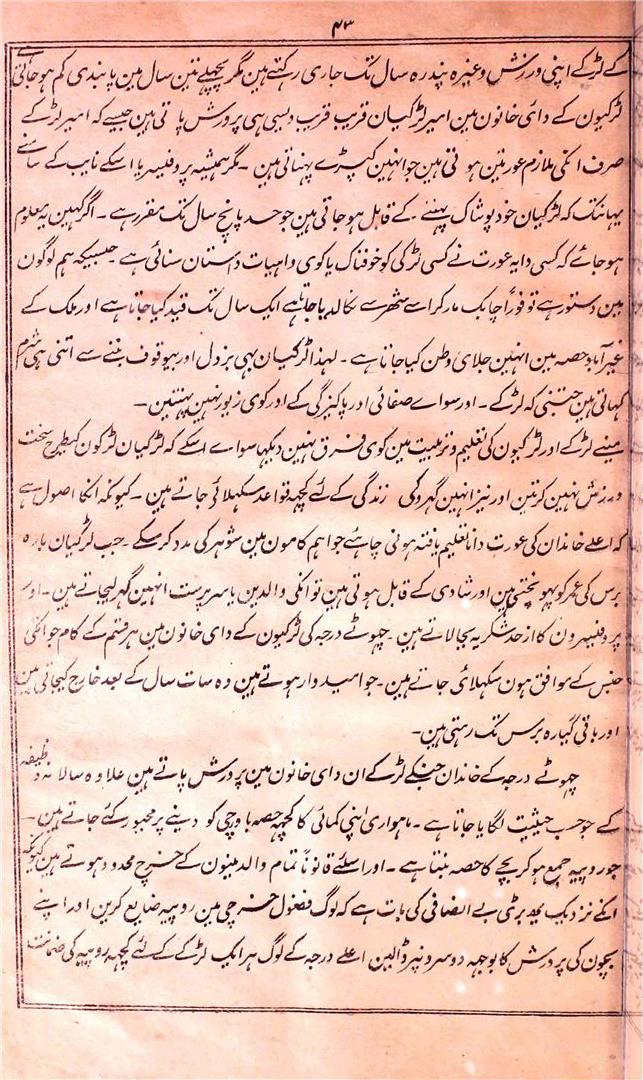 ۴۳
کے لڑکے اپنی ورزش وغیرہ پندرہ سال تک جاری رکہتے ہین مگر پچہلے تین سال مین پابندی کم ہوجاتی ہے
لڑکیون کے دائی خانون مین امیر لڑکیان قریب قریب ویسی ہی پرورش پاتی ہین جیسے کہ امیر لڑکے
صرف انکی ملازم عورتین ہوتی ہین جو انہین کپڑے پہناتی ہین ۔ مگر ہمیشہ پروفیسر یا اسکے نایب کے سامنے
یہانتک کہ لڑکیان خود پوشاک پہننے کے قابل ہوجاتی ہین جو حد پانچ سال تک مقرر ہے ۔ اگر کہین یہ معلوم
ہوجائے کہ کسی دایہ عورت نے کسی لڑکی کو خوفناک یا کوی واہیات دہستان سنائی ہے جیسیکہ ہم لوگون
مین دستور ہے تو فوراً چابک مار کر اسے شہر سے نکالدیا جاتا ہے ایک سال تک قید کیا جاتا ہے اور ملک کے
غیر آباد حصہ مین انہین جلای وطن کیا جاتا ہے ۔ لہذا لڑکیان بہی بزدل اور بیوقوف بننے سے اتنی ہی شرم
کہاتی ہین جتنی کہ لڑکے ۔ اور سواے صفائی اور پاکیزگی کے اور کوی زیور نہین پہنتین ۔
مینے لڑکے اور لڑکیون کی تعلیم و تربیت مین کوی فرق نہین دیکہا سواے اسکے کہ لڑکیان لڑکون کیطرح سخت
ورزش نہین کرتین اور نیز انہین گہرو کی زندگی کے لئے کچہہ قواعد سکہلائی جاتے ہین ۔ کیونکہ انکا اصول ہے
کہ اعلے خاندان کی عورت دانا تعلیم یافتہ ہونی چاہئے جو اہم کامون مین شوہر کی مدد کرسکے ۔ جب لڑکیان بارہ
برس کی عمر کو پہونچتی ہین اور شادی کے قابل ہوتی ہین تو انکی والدین یا سرپرست انہین گہر لیجاتے ہین ۔ اور
پروفیسرون کا از حد شکریہ بجالاتے ہین ۔ چہوٹے درجہ کی لڑکیون کے دای خانون مین ہر قسم کے کام جو انکی
جنس کے موافق ہون سکہلائی جاتے ہین ۔ جو امیدوار ہوتے ہین وہ سات سال کے بعد خارج کیجاتی ہین
اور باقی گیارہ برس تک رہتی ہین ۔
چہوٹے درجہ کے خاندان جنکے لڑکے ان دای خانون مین پرورش پاتے ہین علاوہ سالانہ وظیفہ
کے جو حسب حیثیت لگایا جاتا ہے ۔ ماہواری اپنی کمائی کا کچہہ حصہ باورچی کو دینے پر مجبور کئے جاتے ہین ۔
جو روپیہ جمع ہوکر بچے کا حصہ بنتا ہے ۔ اور اسلئے قانوناً تمام والدینون کے خرچ محدود ہوتے ہین کیونکہ
انکے نزدیک یہ بڑی بے انصافی کی بات ہے کہ لوگ فضول خرچی مین روپیہ ضایع کرین اور اپنے
بچون کی پرورش کا بوجہہ دوسرونپر ڈالین اعلے درجہ کے لوگ ہر ایک لڑکے کے لئے کچہہ روپیہ کی ضمانت